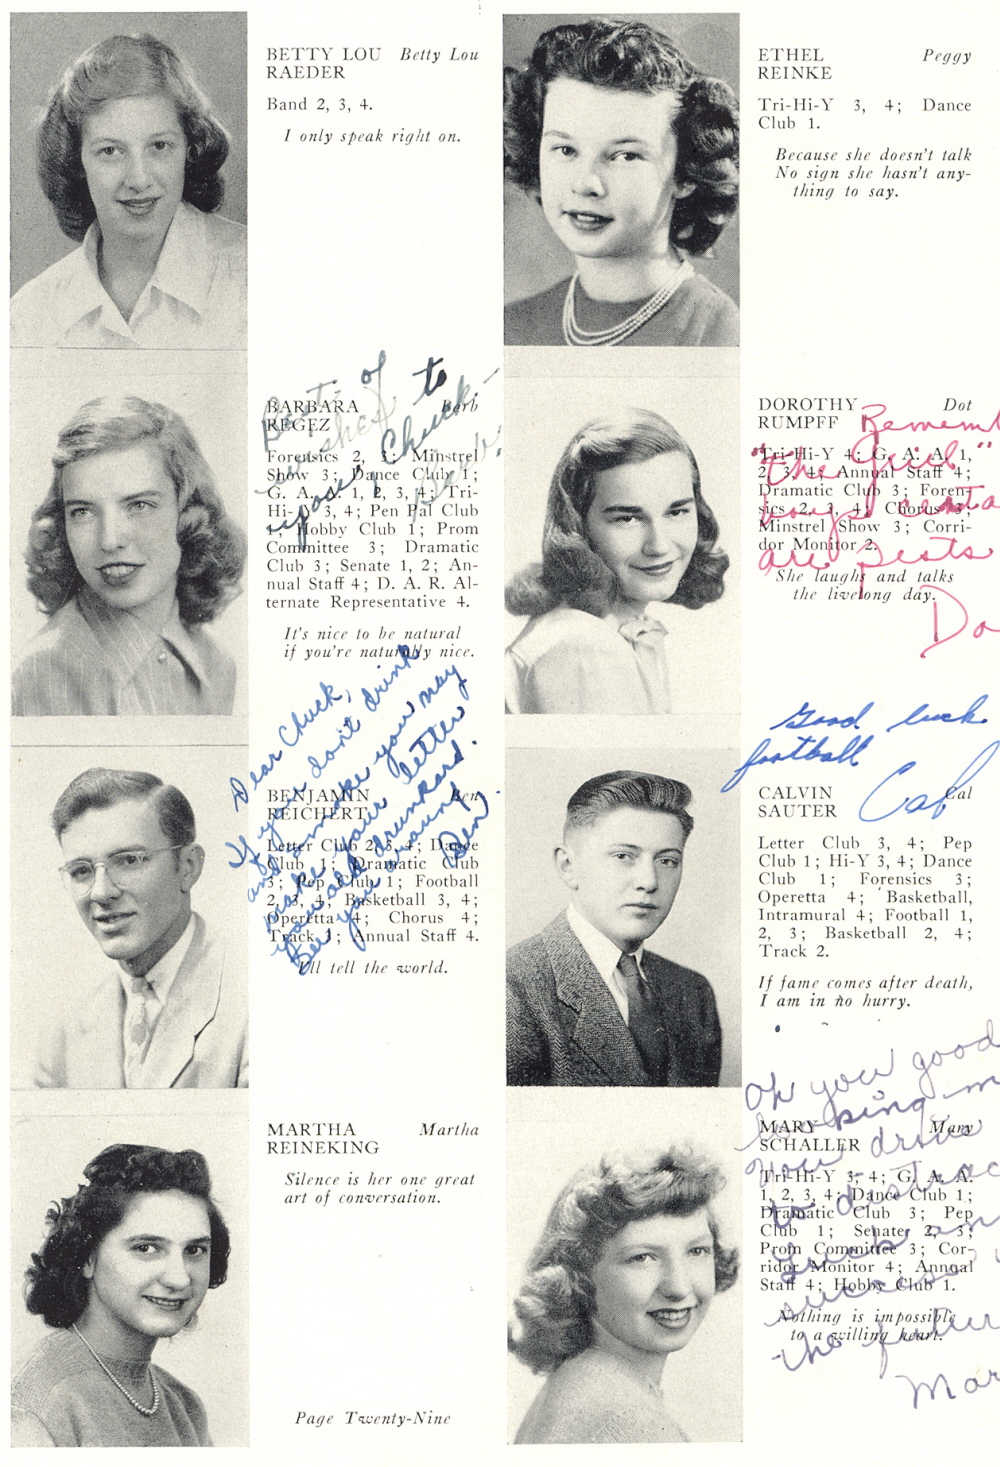 BETTY LOU Betty Lou
RAEDER
Band 2, 3, 4.
I only speak right on.
BARBARA Barb
REGEZ
Forensics 2, 3; Minstrel
Show 3; Dance Club 1;
G. A. A. 1, 2, 3, 4; Tri-
Hi-Y 3, 4; Pen Pal Club
1; Hobby Club 1; Prom
Committee 3; Dramatic
Club 3; Senate 1, 2; An-
nual Staff 4; D. A. R. Al-
ternate Representative 4.
It's nice to be natural
if you're naturally nice.
Best of
to
Chuck
Dear Chuck,
If you don't drink
and smoke you may
make your letter
you old drunkard.
See you around,
Ben
BENJAMIN Ben
REICHERT
Letter Club 2, 3, 4; Dance
Club 1; Dramatic Club
3; Pep Club 1; Football
2, 3, 4; Basketball 3, 4;
Operetta 4; Chorus 4;
Track 3; Annual Staff 4.
I'll tell the world.
MARTHA Martha
REINEKING
Silence is her one great
art of conversation.
Page Twenty-Nine
ETHEL Peggy
REINKE
Tri-Hi-Y 3, 4; Dance
Club 1.
Because she doesn't talk
No sign she hasn't any-
thing to say.
DOROTHY Dot
RUMPFF
Tri-Hi-Y 4; G. A. A. 1,
2, 3, 4; Annual Staff 4;
Dramatic Club 3; Foren-
sics 2, 3, 4; Chorus 3;
Minstrel Show 3; Corri-
dor Monitor 2.
She laughs and talks
the livelong day.
Rememb
"the
boys
are pests
Do
Good luck
football
Cal
CALVIN Cal
SAUTER
Letter Club 3, 4; Pep
Club 1; Hi-Y 3, 4; Dance
Club 1; Forensics 3;
Operetta 4; Basketball,
Intramural 4; Football 1,
2, 3; Basketball 2, 4;
Track 2.
If fame comes after death,
I am in no hurry.
MARY Mary
SCHALLER
Tri-Hi-Y 3, 4; G. A. A.
1, 2, 3, 4; Dance Club 1;
Dramatic Club 3; Pep
Club 1; Senate 2, 3;
Prom Committee 3; Cor-
ridor Monitor 4; Annual
Staff 4; Hobby Club 1.
Nothing is impossible
to a willing heart.
Oh you good
looking m
You drive
to distrac
Luck an
success
the futur
Mar